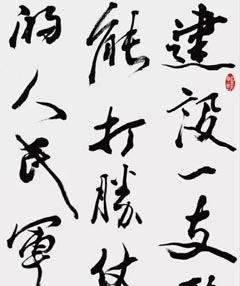 建設一支
能打勝仗
的人民軍